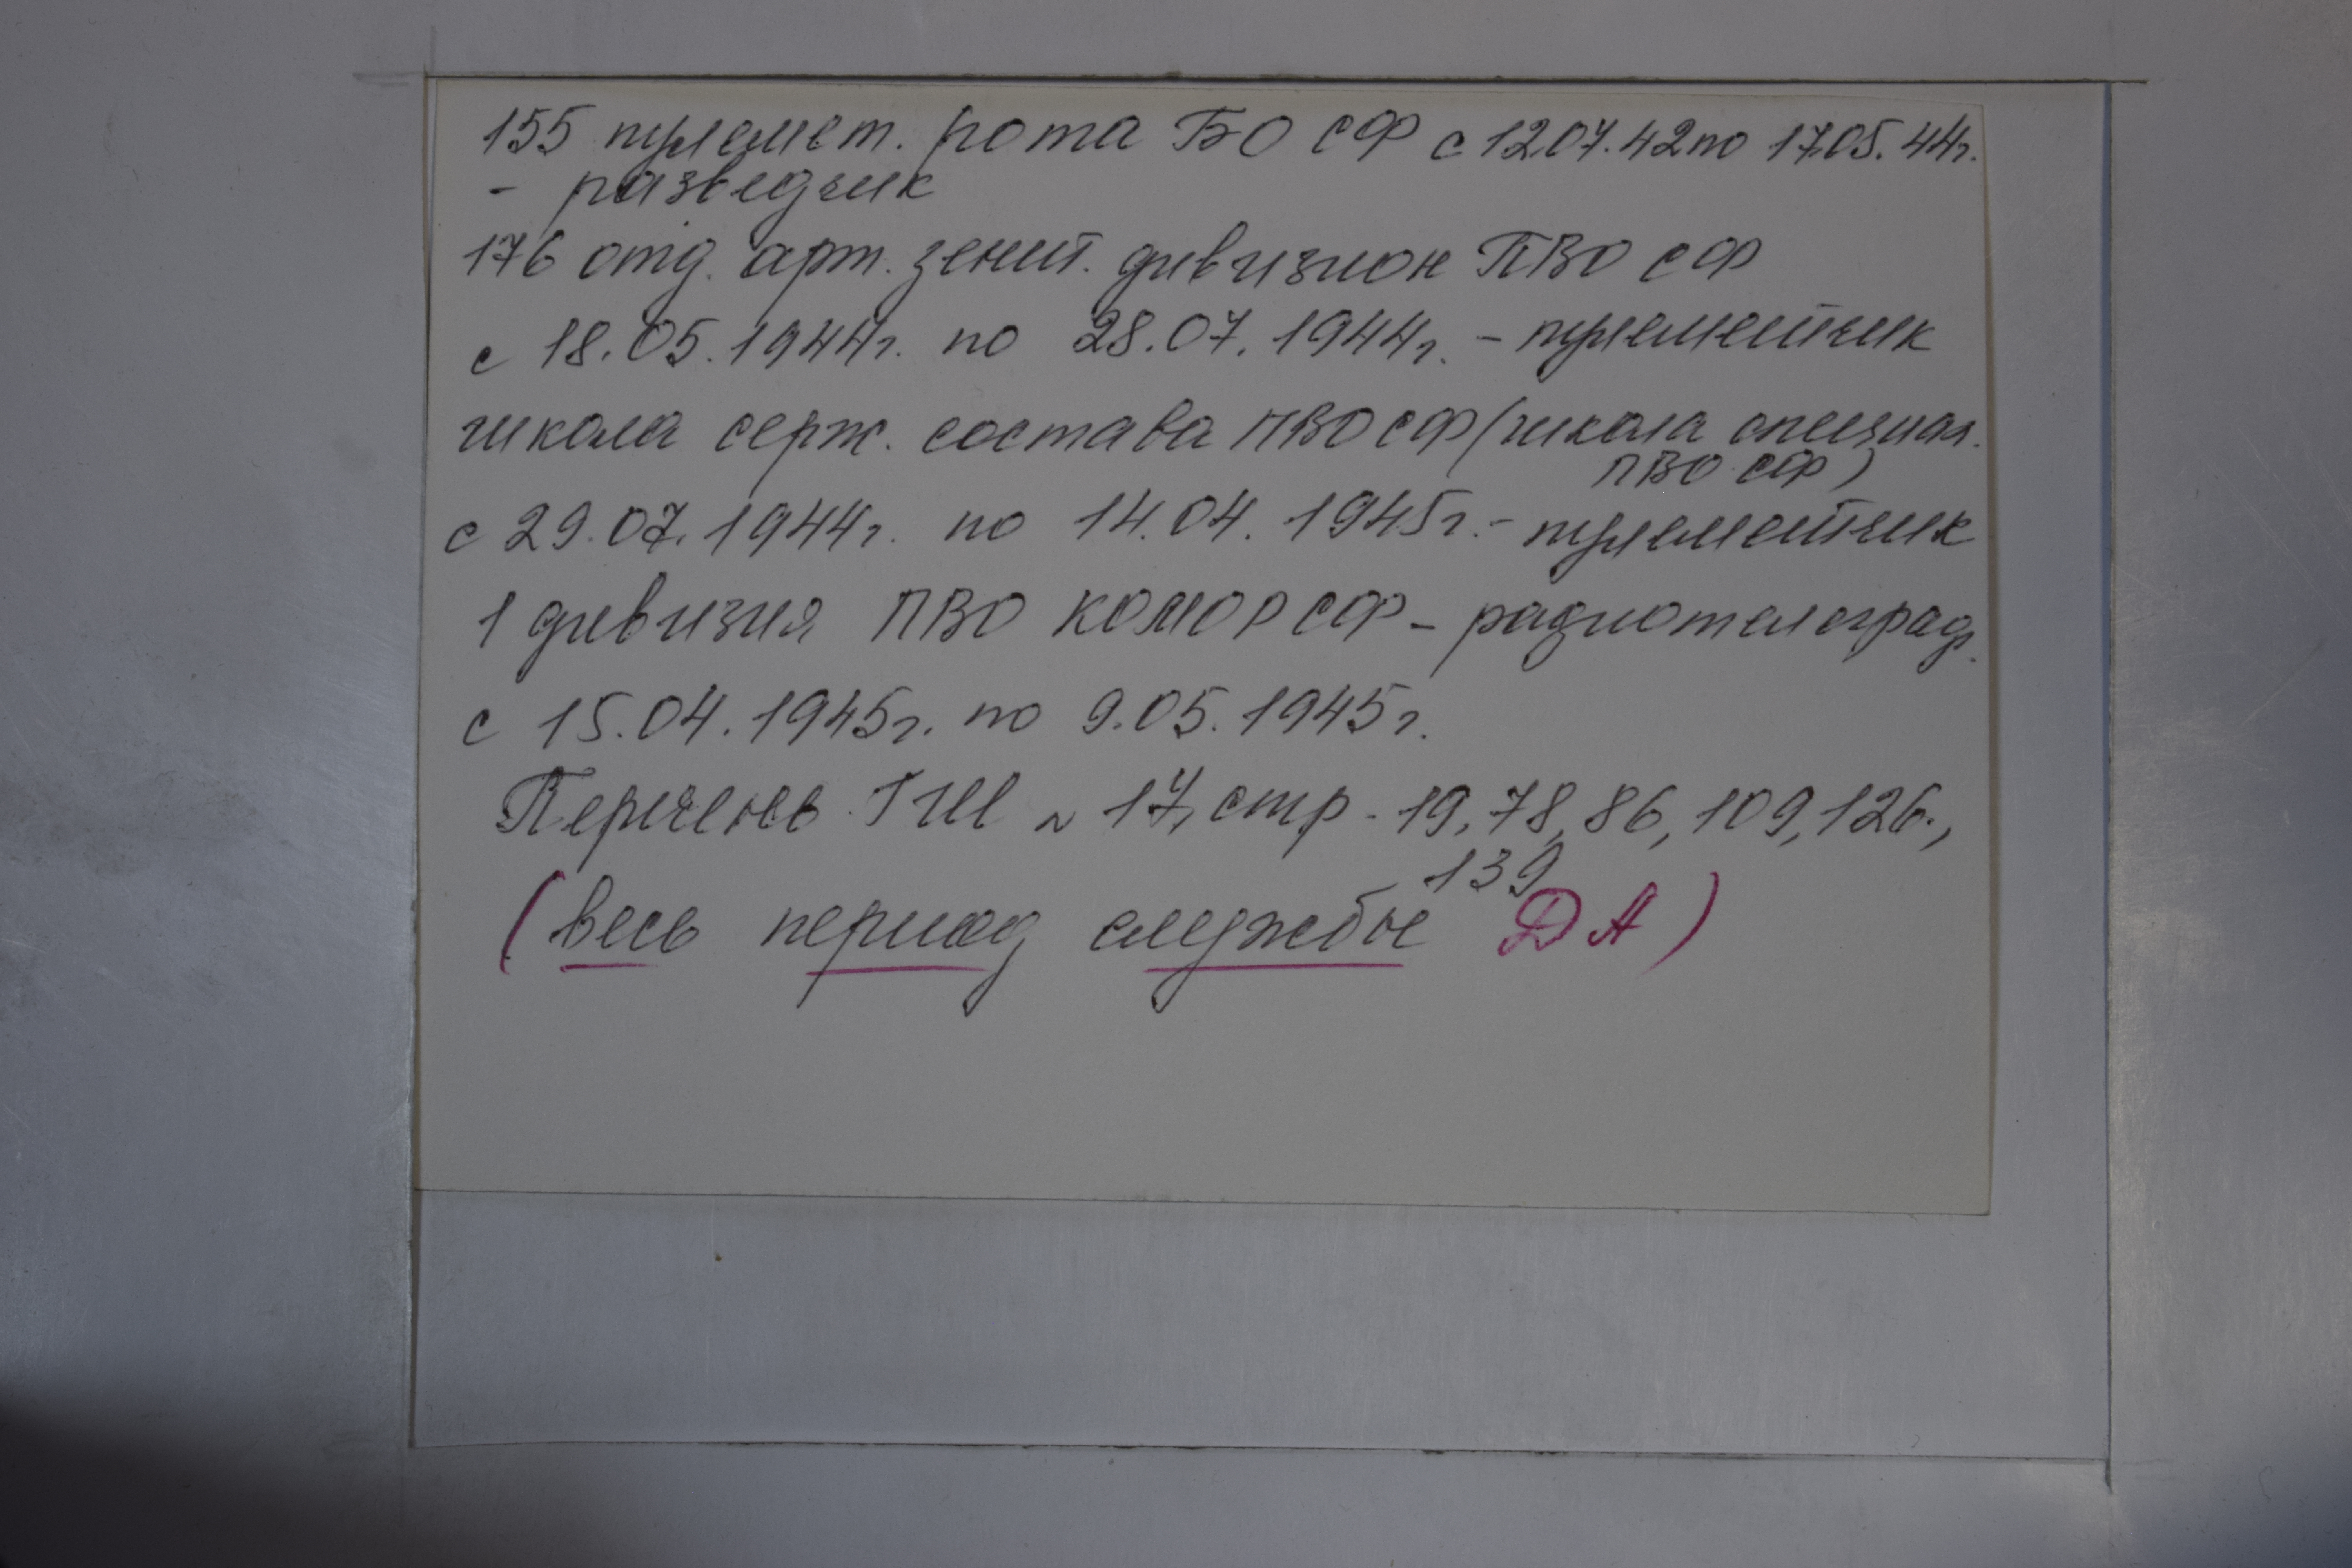 155 пулемет. рота БО СФ с 12.07.42 по 17.05.44г.
- разведчик
176 отд. арт. зенит. дивизион ПВО СФ
с 18.05.1944г. по 28.07.1944г. - пулеметчик
школа серж. состава ПВО СФ (школа специал.
ПВО СФ)
с 29.07.1944г. по 14.04.1945г. - пулеметчик
1 дивизия ПВО КОМОР СФ - радиотелеграф.
с 15.04.1945г. по 9.05.1945г.
Перечень ГШ № 17, стр. 19, 78, 86, 109, 126.,
139
(весь период службы ДА)